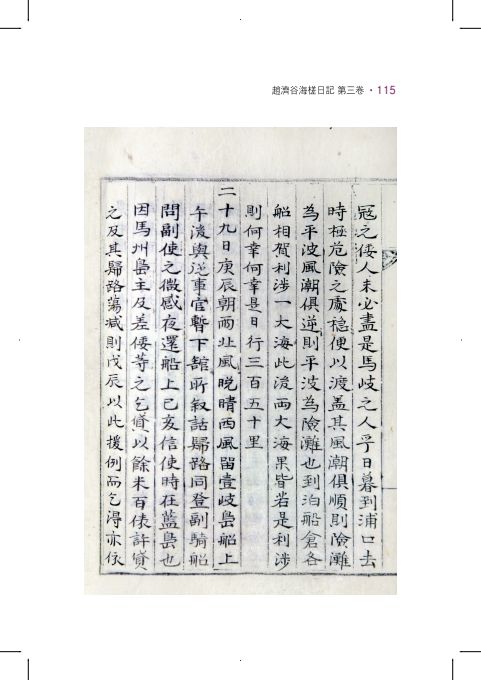 趙濟谷海槎日記 第三卷 · 115
冦之倭人未必盡是馬岐之人乎日暮到浦口去
時極危險之處穏便以渡盖其風潮俱順則險灘
為平波風潮俱逆則平波為險灘也到泊船倉各
船相賀利涉一大海此後兩大海果皆若是利涉
則何幸何幸是日行三百五十里
二十九日庚辰朝雨北風晩晴西風留壹岐島船上
午後與從事官暫下舘所叙話歸路同登副騎船
問副使之微感夜還船上己亥信使時在藍島也
因馬州島主及差倭等之乞貸以餘米百俵許貸
之及其歸路蕩减則戊辰以此援例而乞得亦依